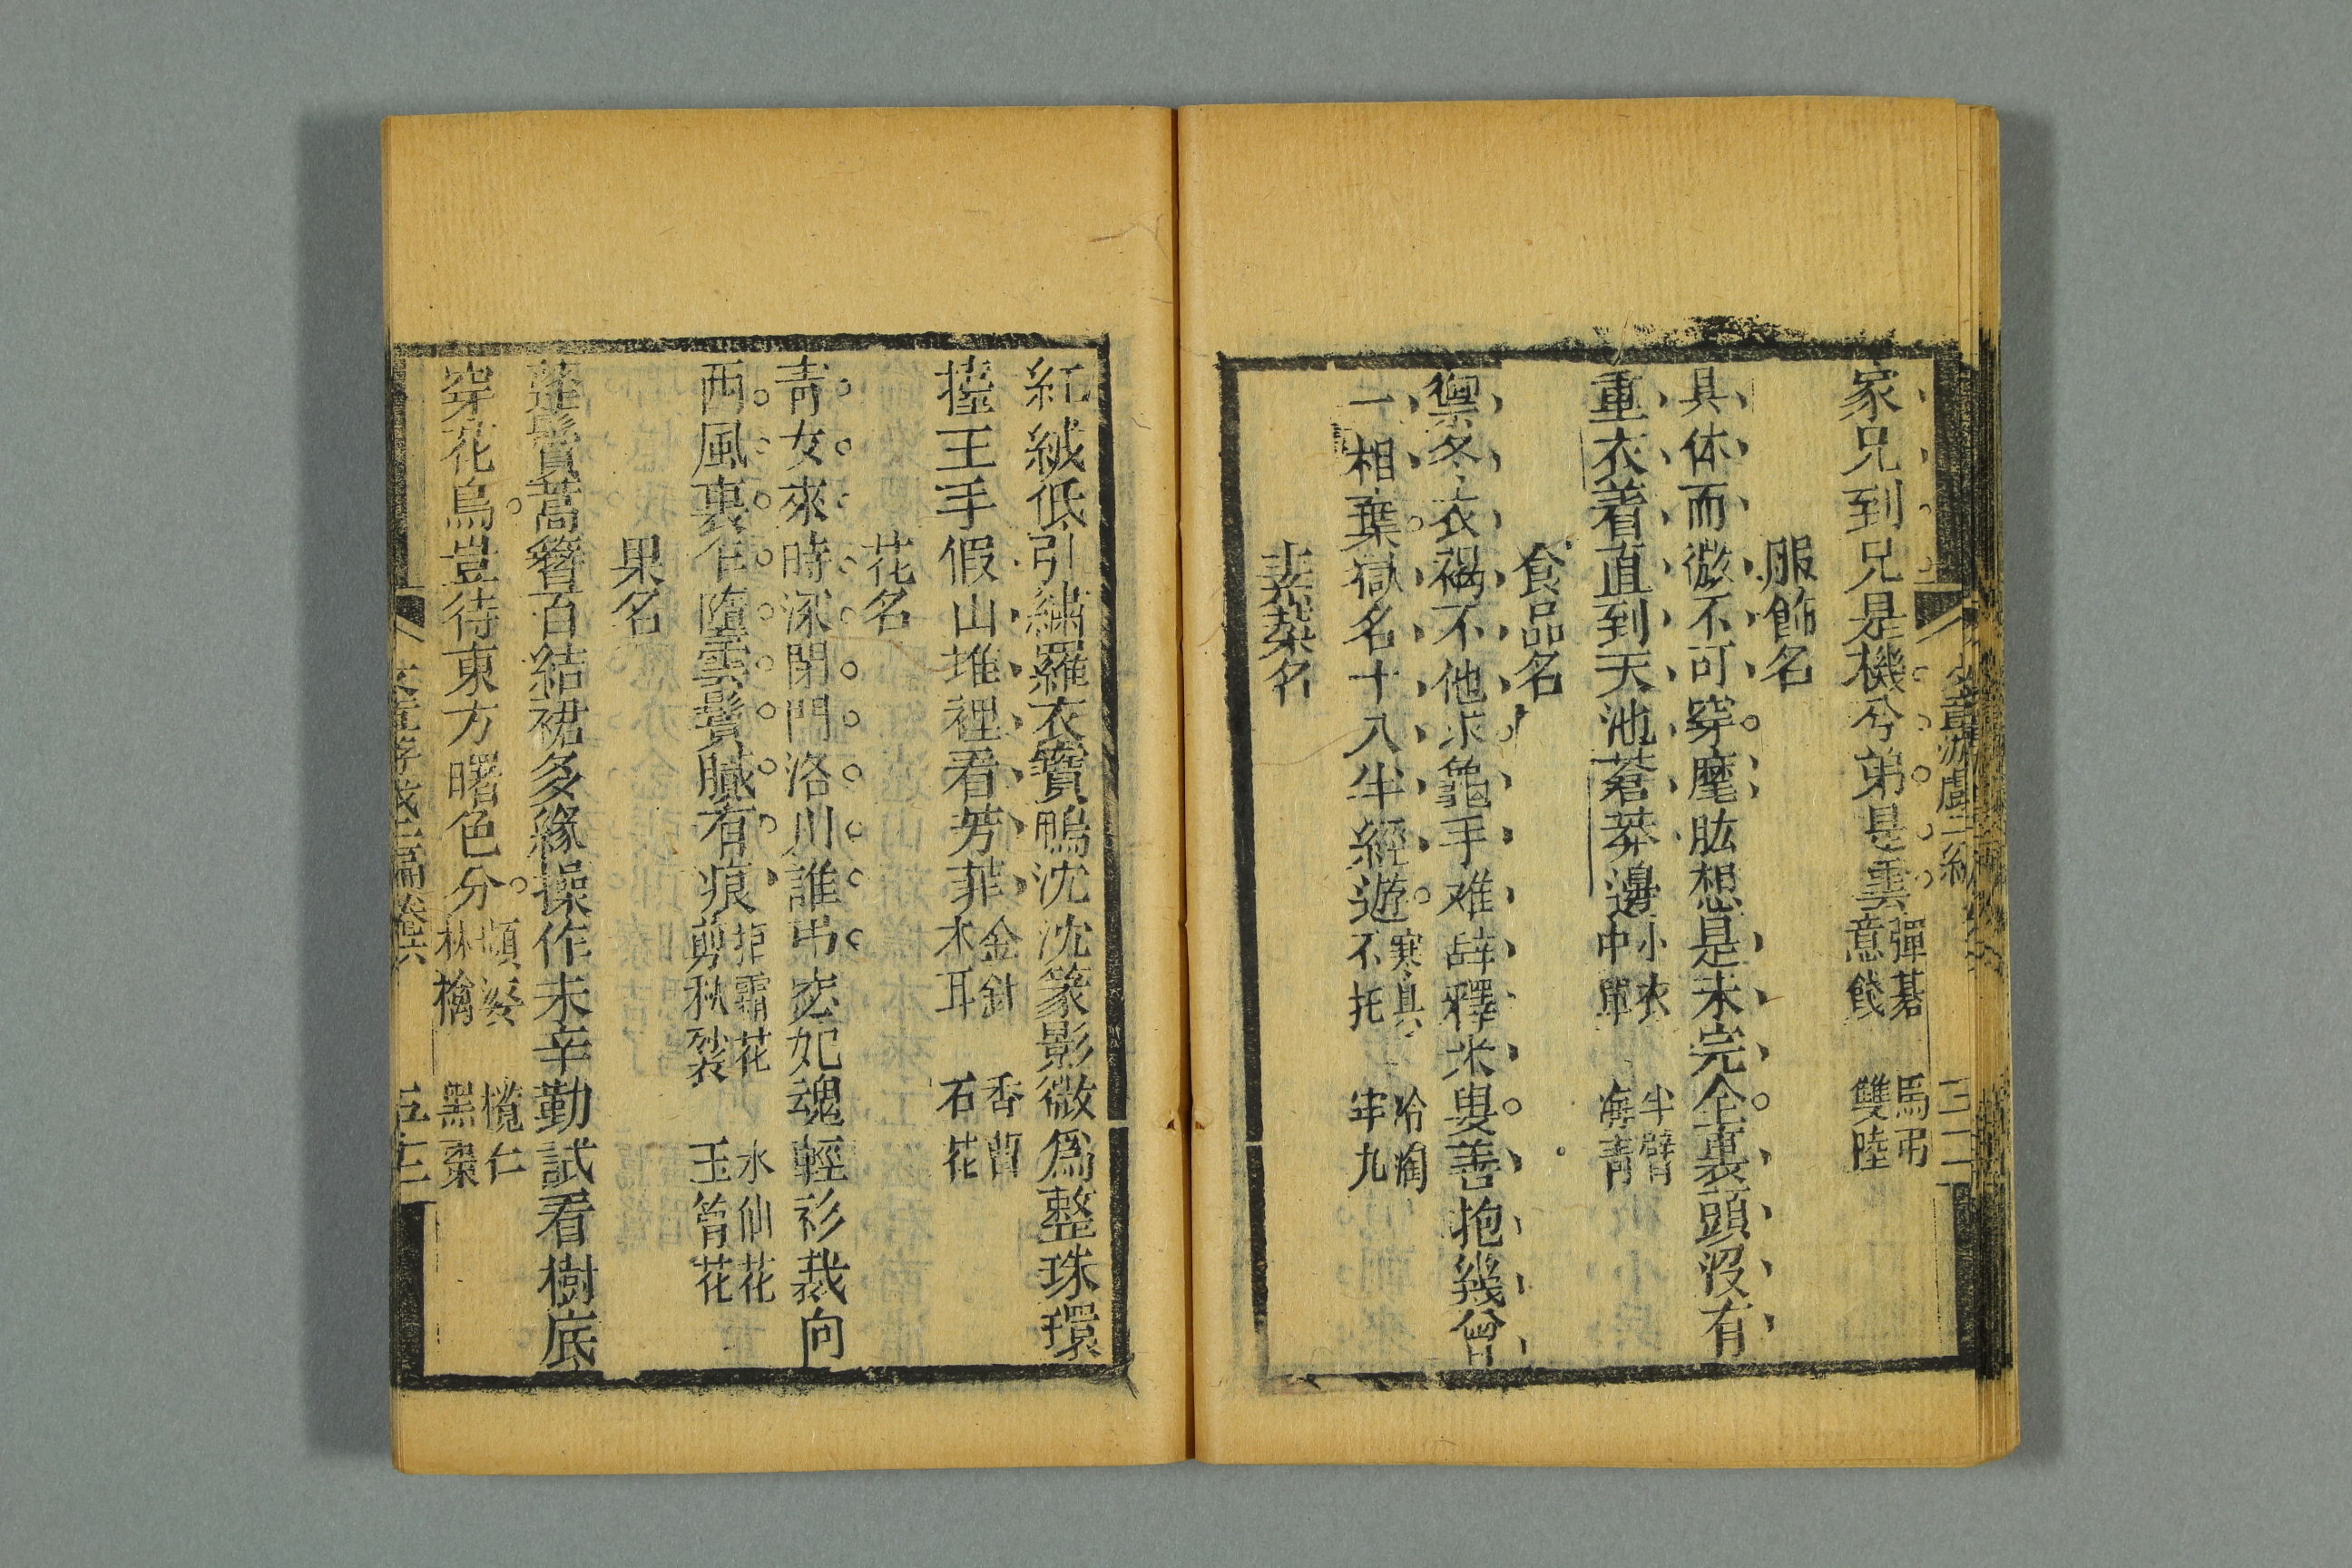 家兄到兄是機兮弟是雲 彈碁 意餞 馬弔 雙陸
服飾名
具体而微不可穿麾肱想是未完全裹頭沒有
重衣着直到天池莽邊 小衣 中單 半臂 海青
食品名
禦冬衣褐不他求龜手难辞釋米叟善抱幾曾
一相葉嶽名十八半經遊 寒具 不托 冷淘 牢九
素蔬名
紅絨低引繡羅衣寶鴨沈沈篆影微為整珠環
擡王手假山堆裡看芳菲 金針 木耳 香蕈 石花
花名
青女來時深閉門洛川誰弔宓妃魂輕衫裁向
西風裏墮雲鬟膩有痕 拒霜花 剪秋裂 水仙花 玉簪花
果名
蓬鬢蒿簪百結裙多緣操作未辛勤試看樹底
穿花鳥豈待東方曙色分 頻婆 林檎 欖仁 黑棗